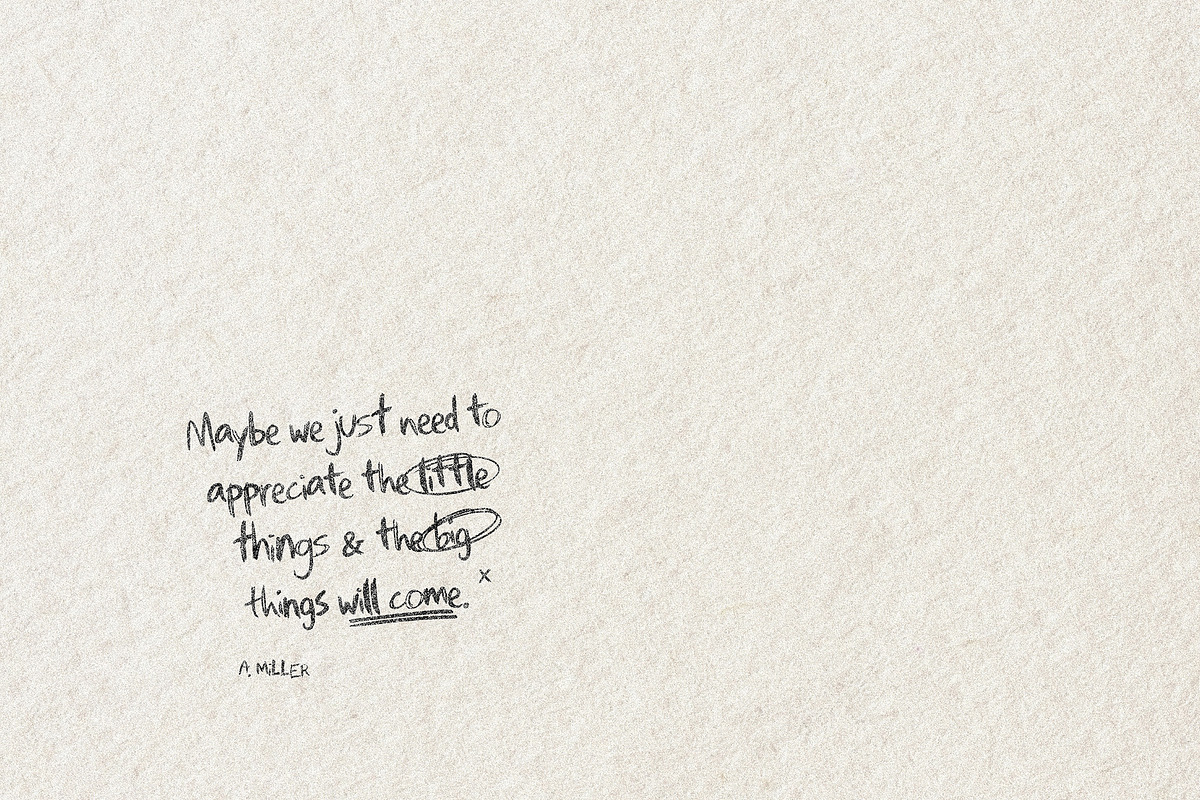 Maybe we just need to
appreciate the little
things & the big
things will come.
x
A. MiLLER